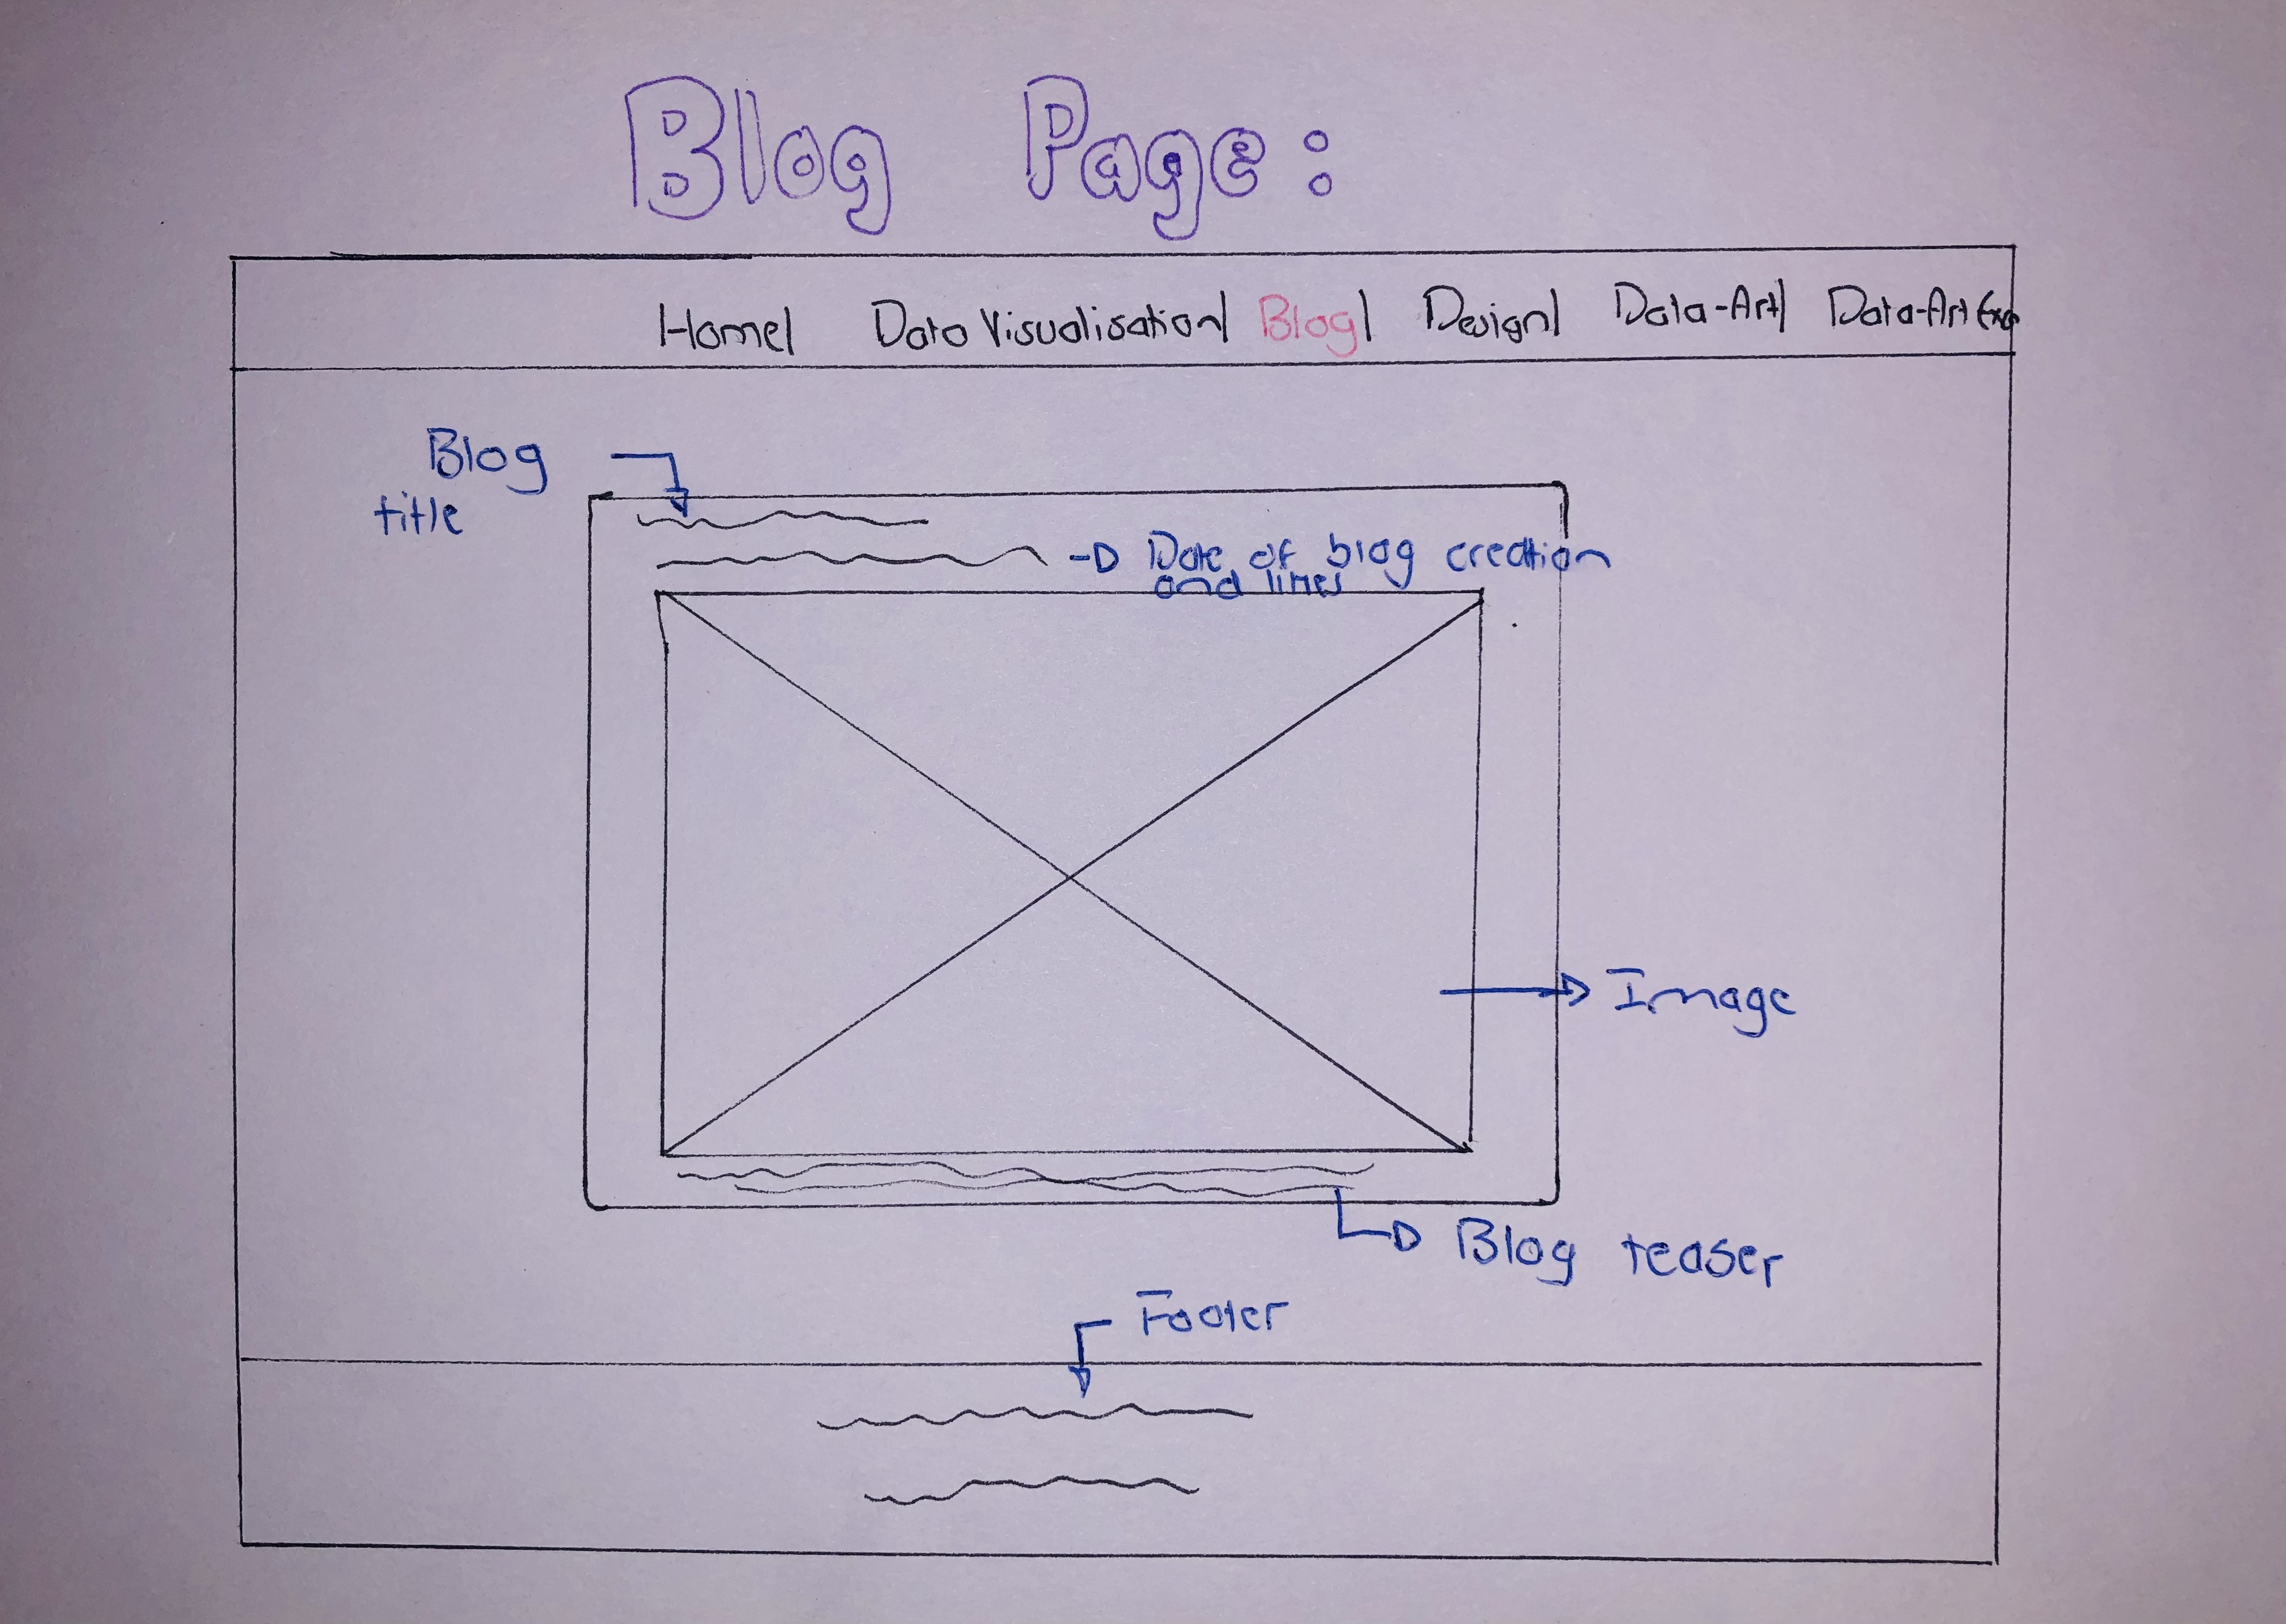 Blog Page:
Home| Data Visualisation| Blog| Design| Data-Art| Data-Art
Blog
title
Date of blog creation
and times
Image
Blog teaser
Footer